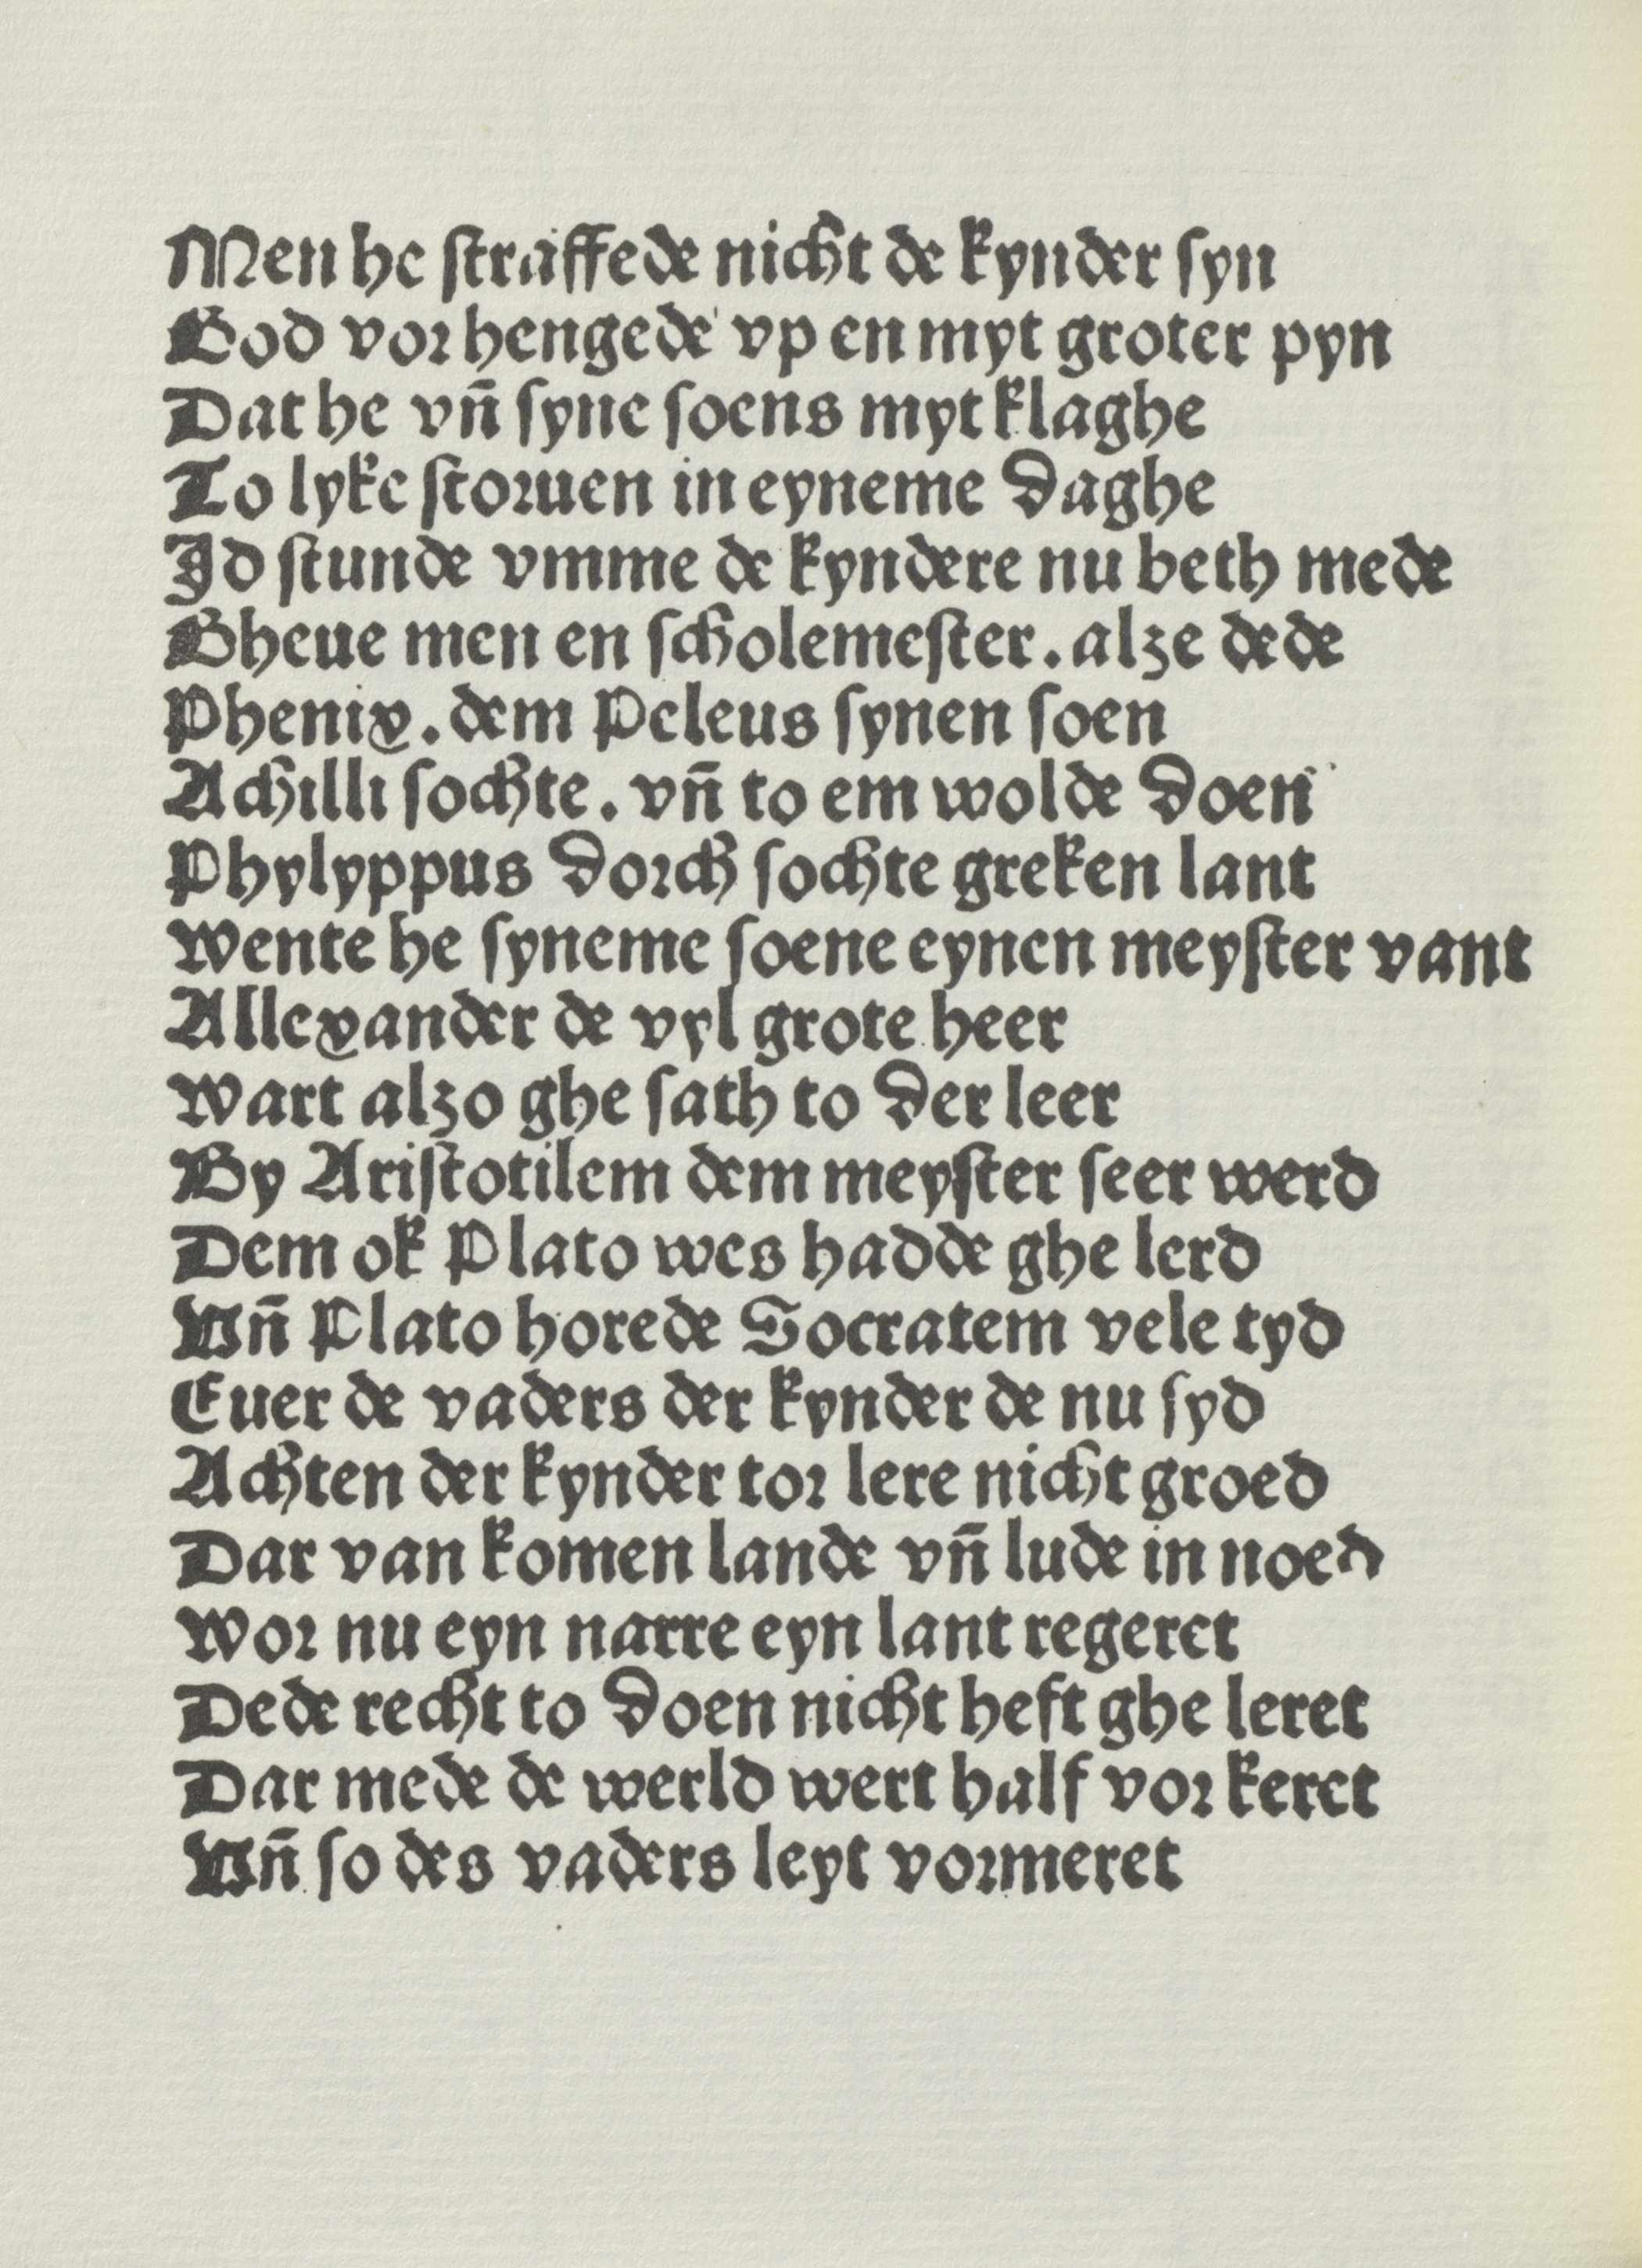 Men he straffede nicht de kynder syn
God vor hengede vp en myt groter pyn
Dat he vn̄ syne soens myt klaghe
To lyke storuen in eyneme daghe
Id stunde vmme de kyndere nu beth mede
Gheue men en scholemester. alze dede
Phenix. dem Peleus synen soen
Achilli sochte. vn̄ to em wolde doen
Phylyppus dorch sochte greken lant
Wente he syneme soene eynen meyster vant
Allexander de vyl grote heer
Wart alzo ghe sath to der leer
By Aristotilem dem meyster seer werd
Dem ok Plato wes hadde ghe lerd
Vn̄ Plato horede Socratem vele tyd
Euer de vaders der kynder de nu syd
Achten der kynder tor lere nicht groed
Dar van komen lande vn̄ lude in noed
Wor nu eyn narre eyn lant regeret
Dede recht to doen nicht heft ghe leret
Dar mede de werld wert half vor keret
Vn̄ so des vaders leyt vormeret